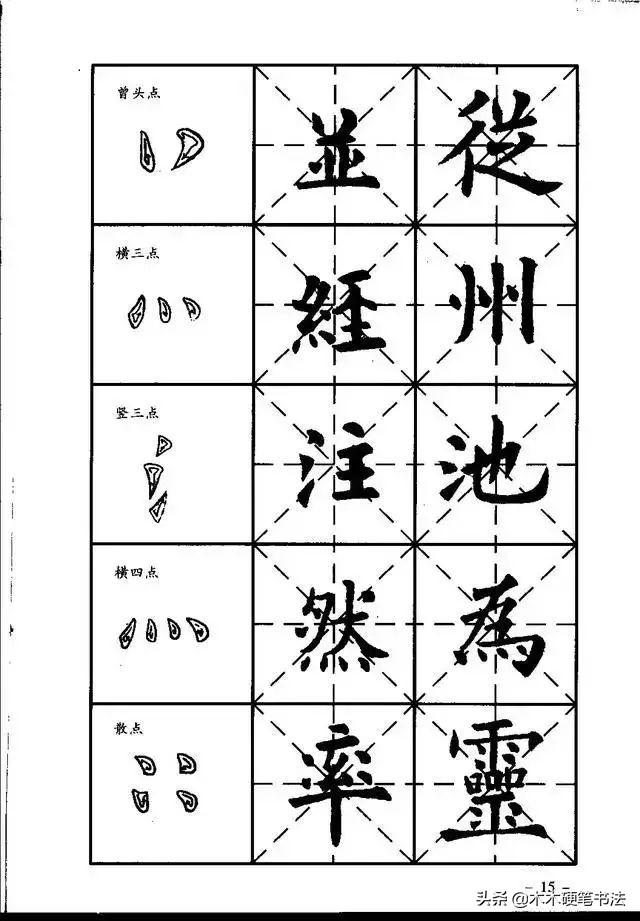 曾头点
並 從
横三点
經 州
竖三点
注 池
横四点
然 為
散点
率 靈
- 15 -
头条 @木木硬笔书法